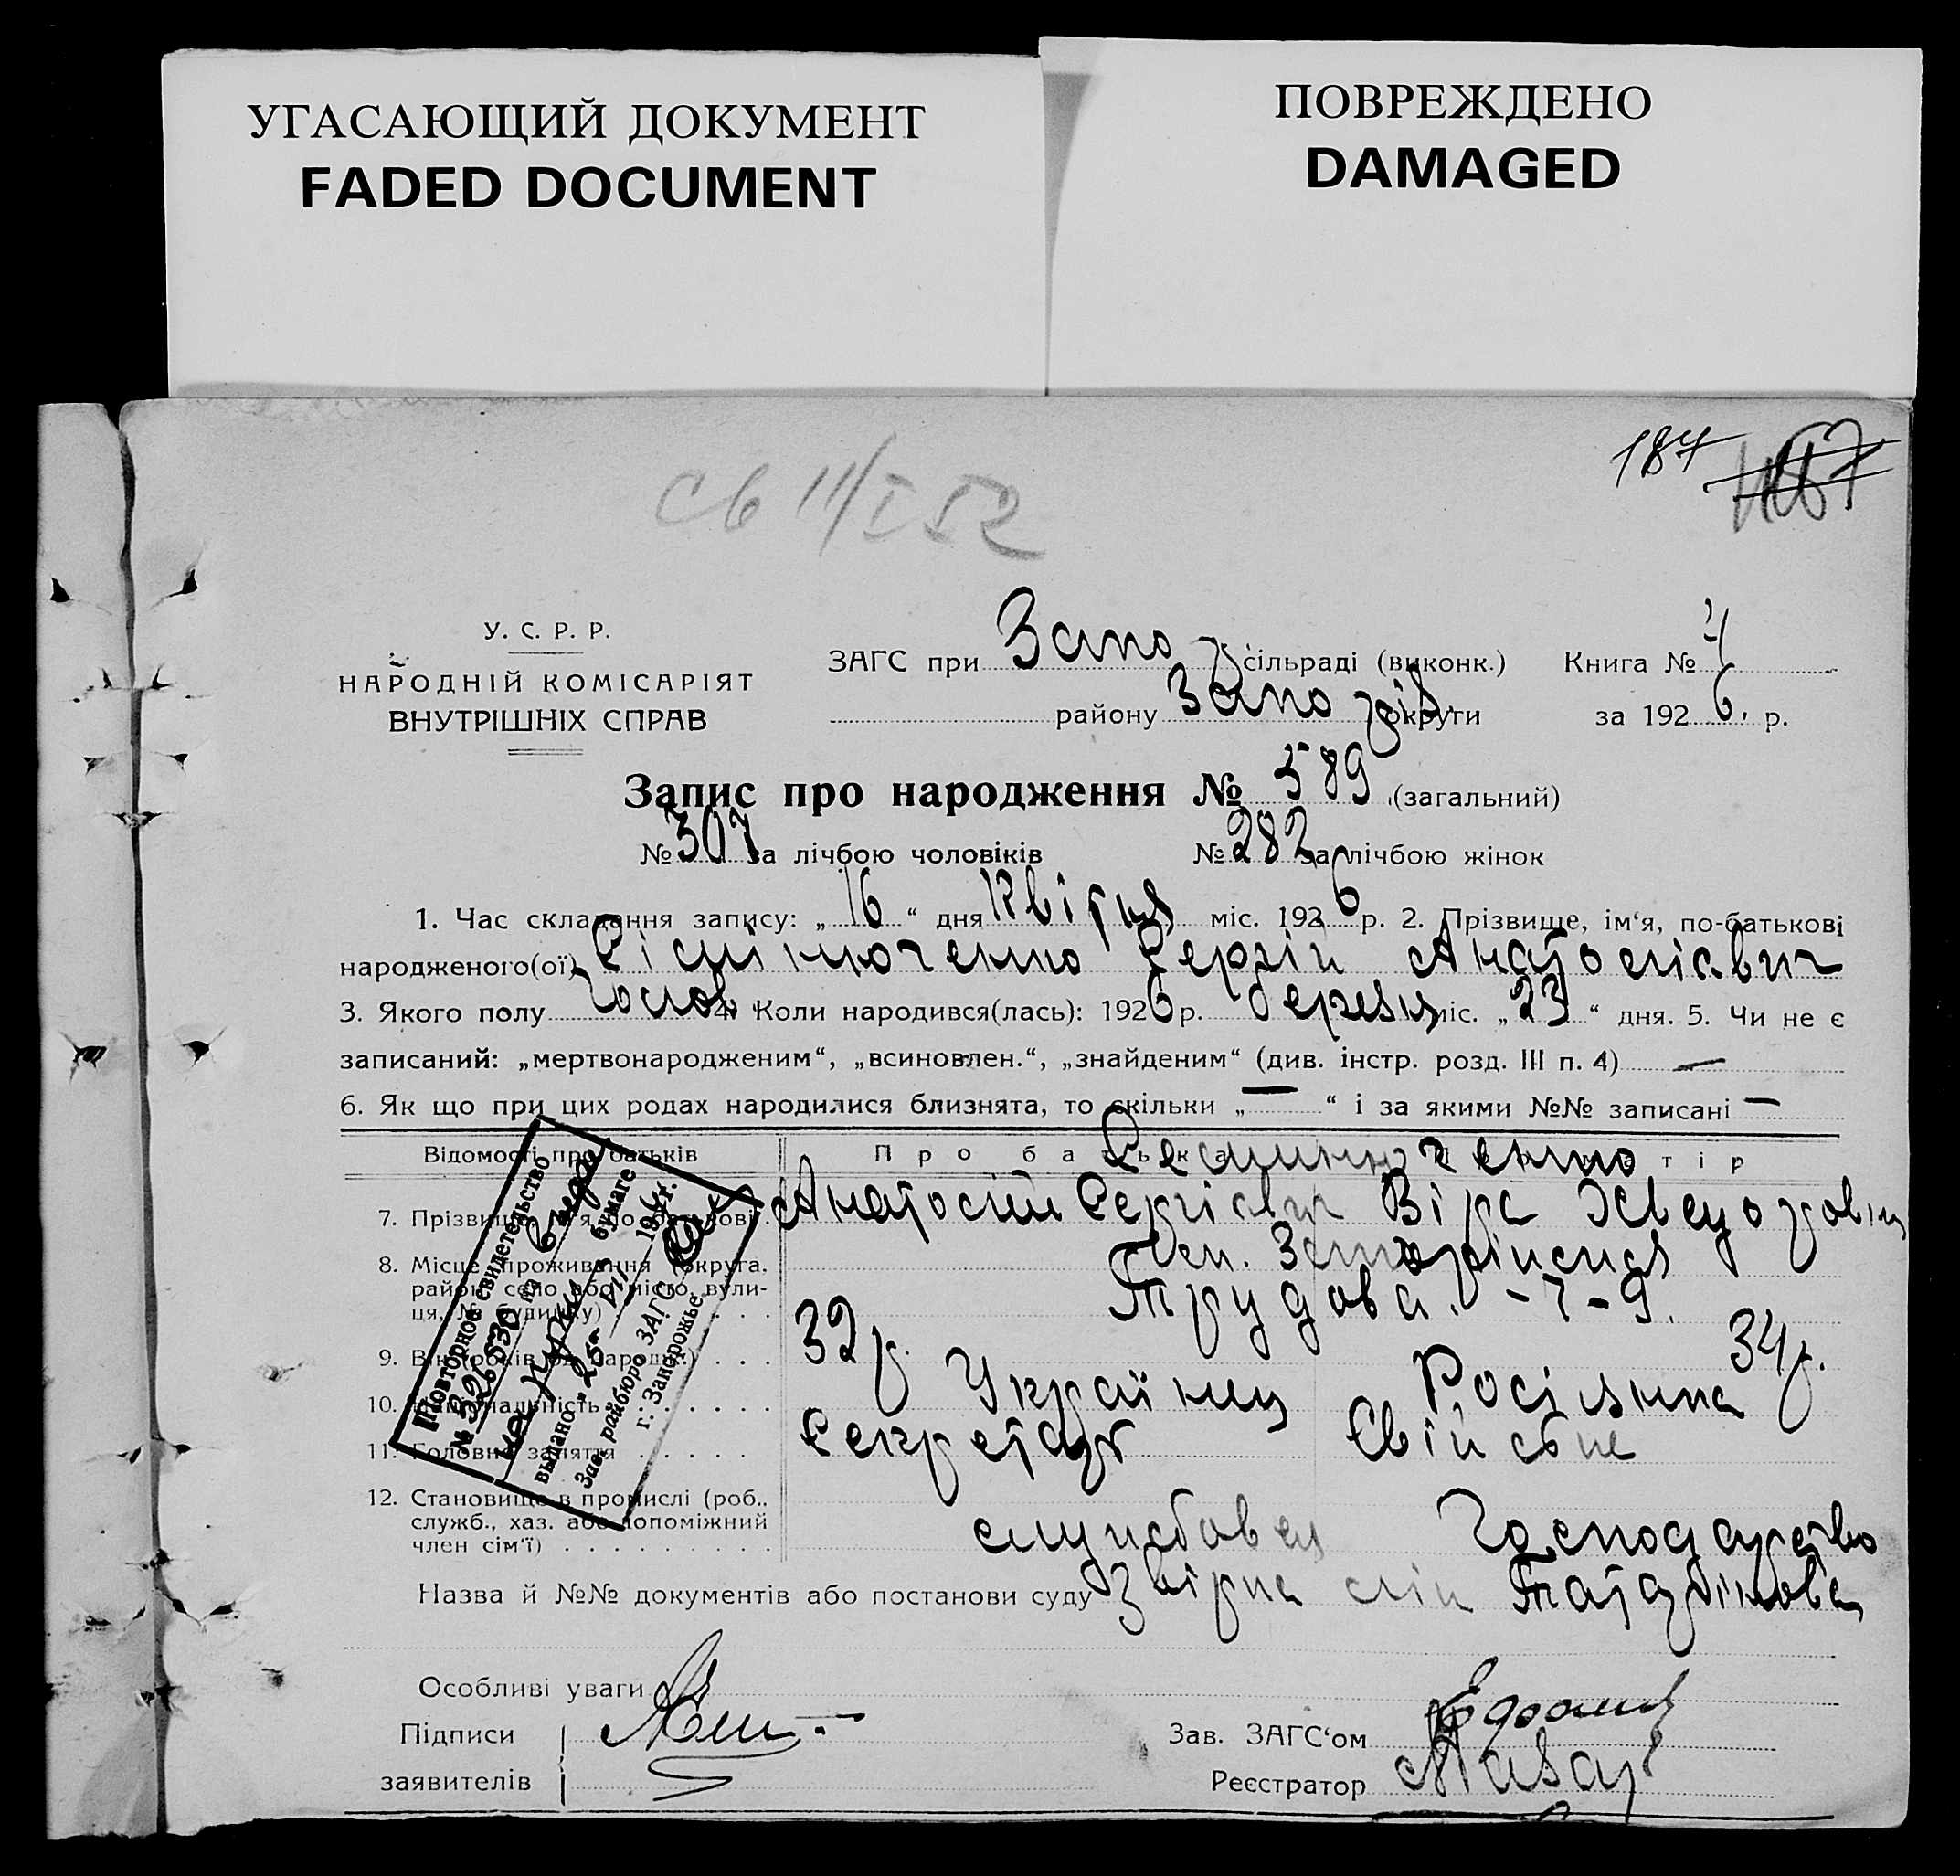 УГАСАЮЩИЙ ДОКУМЕНТ
FADED DOCUMENT
ПОВРЕЖДЕНО
DAMAGED
187
Св 11/I 52
У. С. Р. Р.
НАРОДНІЙ КОМІСАРІЯТ
ВНУТРІШНІХ СПРАВ
ЗАГС при Запо сільраді (виконк.) Книга № 4
району Запоріз округи за 1926 р.
Запис про народження № 589 (загальний)
№ 307 за лічбою чоловіків № 282 за лічбою жінок
1. Час складання запису: „16“ дня Квітня міс. 1926 р. 2. Прізвище, ім‘я, по-батькові
народженого(ої) Сергій Анатолієвич
3. Якого полу Чолов 4. Коли народився(лась): 1926 р. Березня міс. „23“ дня. 5. Чи не є
записаний: „мертвонародженим“, „всиновлен.“, „знайденим“ (див. інстр. розд. III п. 4) —
6. Як що при цих родах народилися близнята, то скільки „—“ і за якими №№ записані —
Відомості про батьків Про батька Про матір
7. Прізвище, ім‘я, по-батькові Анатолій Сергієвич Віра
8. Місце проживання (округа, район, село або місто, вули-
ця, № будинку) Трудова. - 7 - 9.
9. Вік (років од народж.) 32 р. 34 р.
10. Національність Українец Росіянка
11. Головне заняття Секретар Свійське
12. Становище в промислі (роб.,
служб., хаз. або допоміжний
член сім‘ї) службовец Господарство
Назва й №№ документів або постанови суду
Особливі уваги
Підписи
заявителів
Зав. ЗАГС‘ом
Реєстратор
Повторное свидетельство
№ 326530 на
бумаге
выдано „25“ VII 194 г.
Зав. райбюро ЗАГС
г. Запорожье